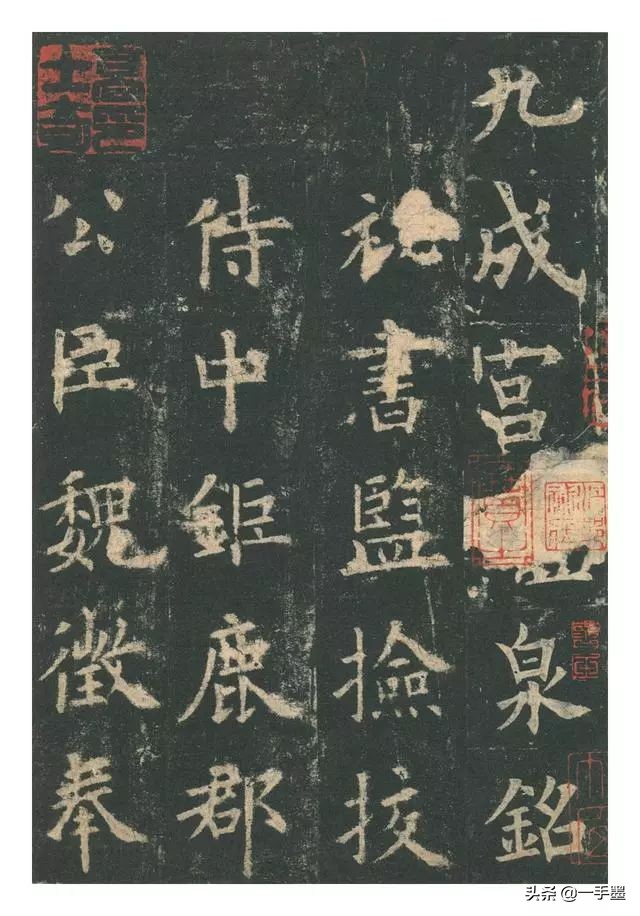 九成宮泉銘
書監撿挍
侍中鉅鹿郡
公臣魏徵奉
头条 @一手墨